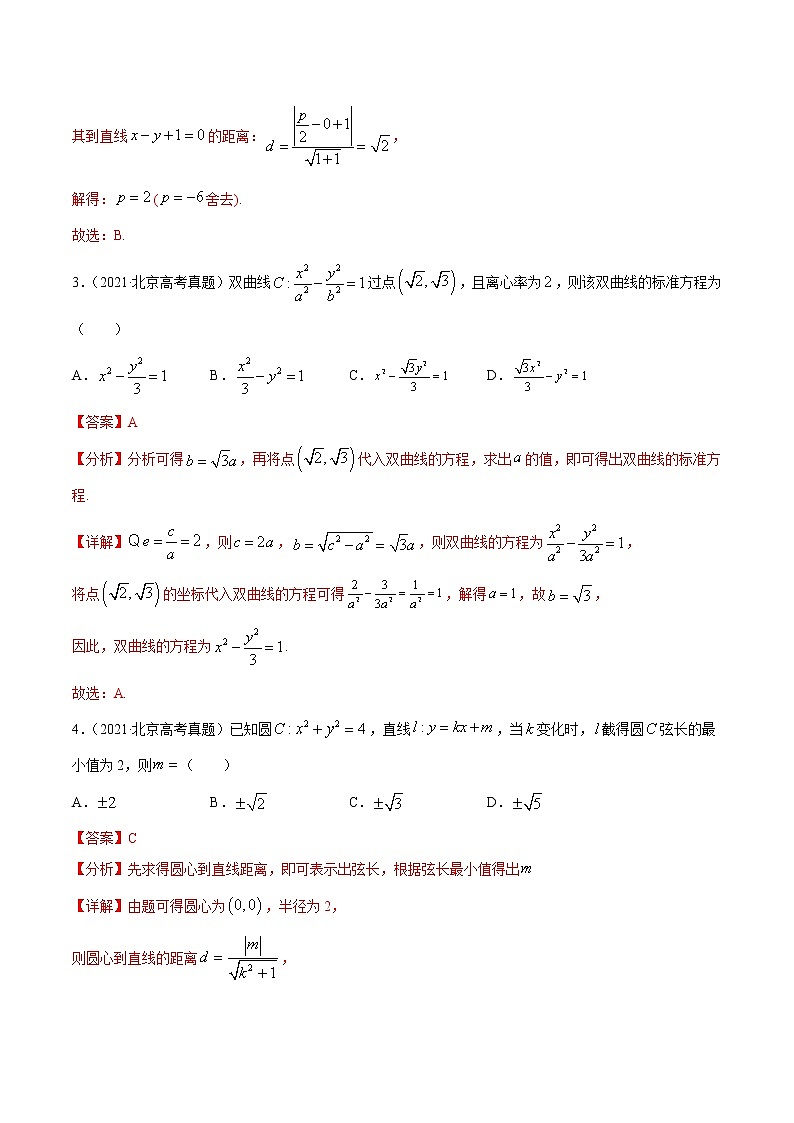 其到直线 x − y + 1 = 0 的距离：d = |p/2 − 0 + 1| / √(1+1) = √2，
解得：p = 2（p = −6舍去).
故选：B.
3.（2021·北京高考真题）双曲线 C : x²/a² − y²/b² = 1 过点 (√2, √3)，且离心率为 2，则该双曲线的标准方程为
（　　）
A．x² − y²/3 = 1　B．x²/3 − y² = 1　C．x² − √3y²/3 = 1　D．√3x²/3 − y² = 1
【答案】A
【分析】分析可得 b = √3a，再将点 (√2, √3) 代入双曲线的方程，求出 a 的值，即可得出双曲线的标准方
程.
【详解】Q e = c/a = 2，则 c = 2a，b = √(c² − a²) = √3a，则双曲线的方程为 x²/a² − y²/3a² = 1，
将点 (√2, √3) 的坐标代入双曲线的方程可得 2/a² − 3/3a² = 1/a² = 1，解得 a = 1，故 b = √3，
因此，双曲线的方程为 x² − y²/3 = 1.
故选：A.
4.（2021·北京高考真题）已知圆 C : x² + y² = 4，直线 l : y = kx + m，当 k 变化时，l 截得圆 C 弦长的最
小值为 2，则 m =（　　）
A．±2　B．±√2　C．±√3　D．±√5
【答案】C
【分析】先求得圆心到直线距离，即可表示出弦长，根据弦长最小值得出 m
【详解】由题可得圆心为 (0,0)，半径为 2，
则圆心到直线的距离 d = |m| / √(k² + 1)，